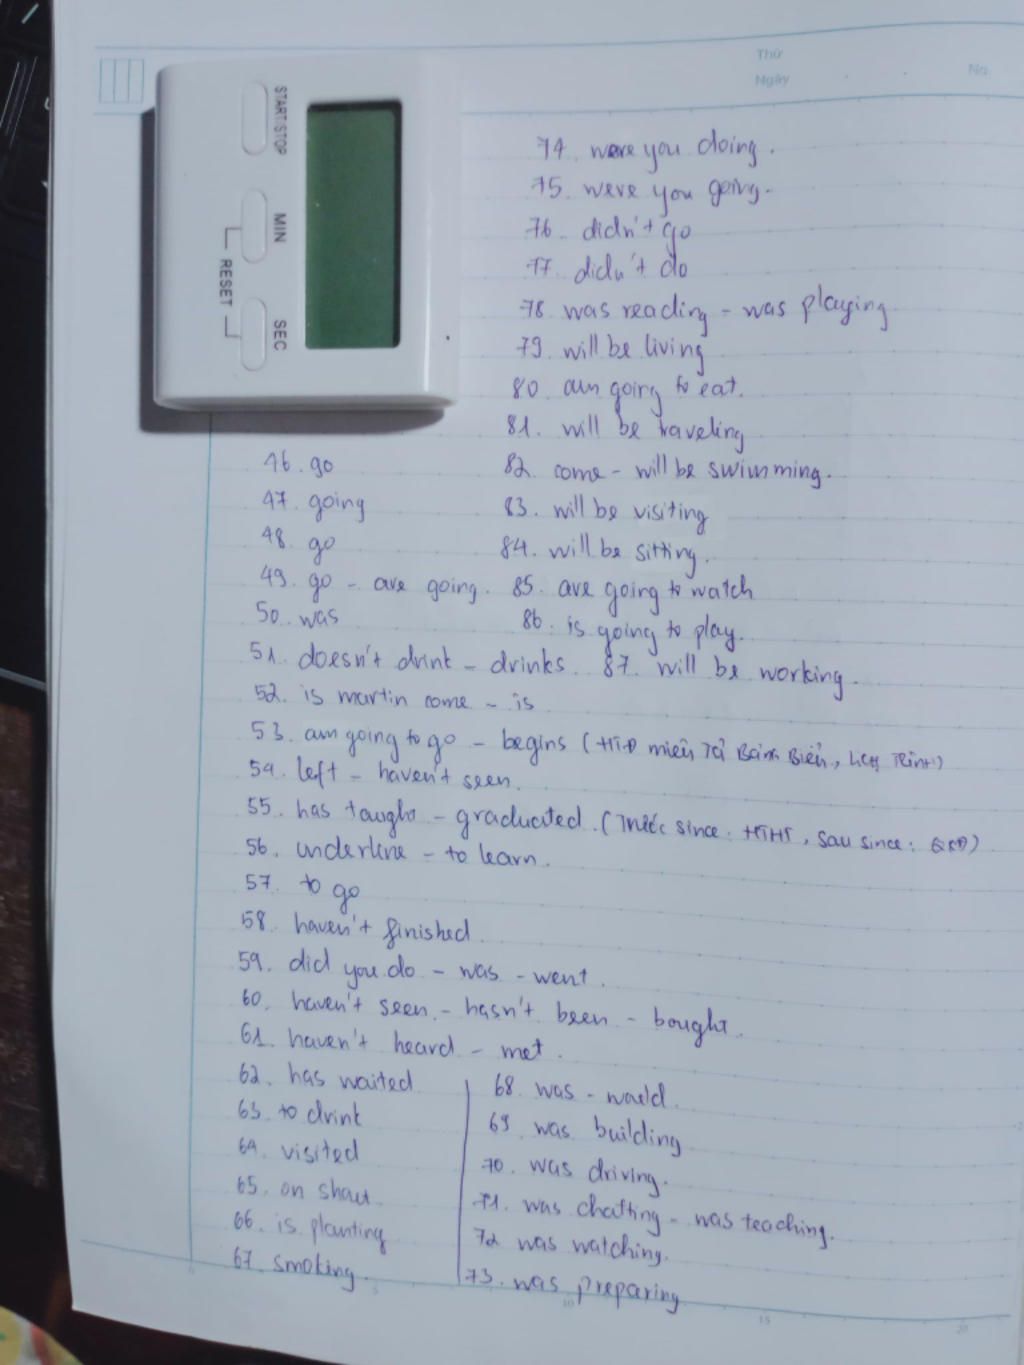 Thứ
Ngày
No.
START/STOP
MIN
RESET
SEC
46. go
47. going
48. go
49. go - are going.
50. was
51. doesn't drink - drinks.
52. is martin come - is
53. am going to go - begins (HTĐ miêu Tả Bảng Biển, Lịch Trình)
54. left - haven't seen.
55. has taught - graduated. (Trước since: HTHT, sau since: QKĐ)
56. underline - to learn.
57. to go
58. haven't finished
59. did you do - was - went.
60. haven't seen - hasn't been - bought.
61. haven't heard - met.
62. has waited
63. to drink
64. visited
65. on
66. is planting
67. smoking.
68. was -
69. was building
70. was driving.
71. was chatting - was teaching.
72 was watching.
73. was preparing
74. were you doing.
75. were you going.
76. didn't go
77. didn't do
78. was reading - was playing
79. will be living
80. am going to eat.
81. will be traveling
82. come - will be swimming.
83. will be visiting
84. will be sitting.
85. are going to watch
86. is going to play.
87. will be working.
5
10
15
20